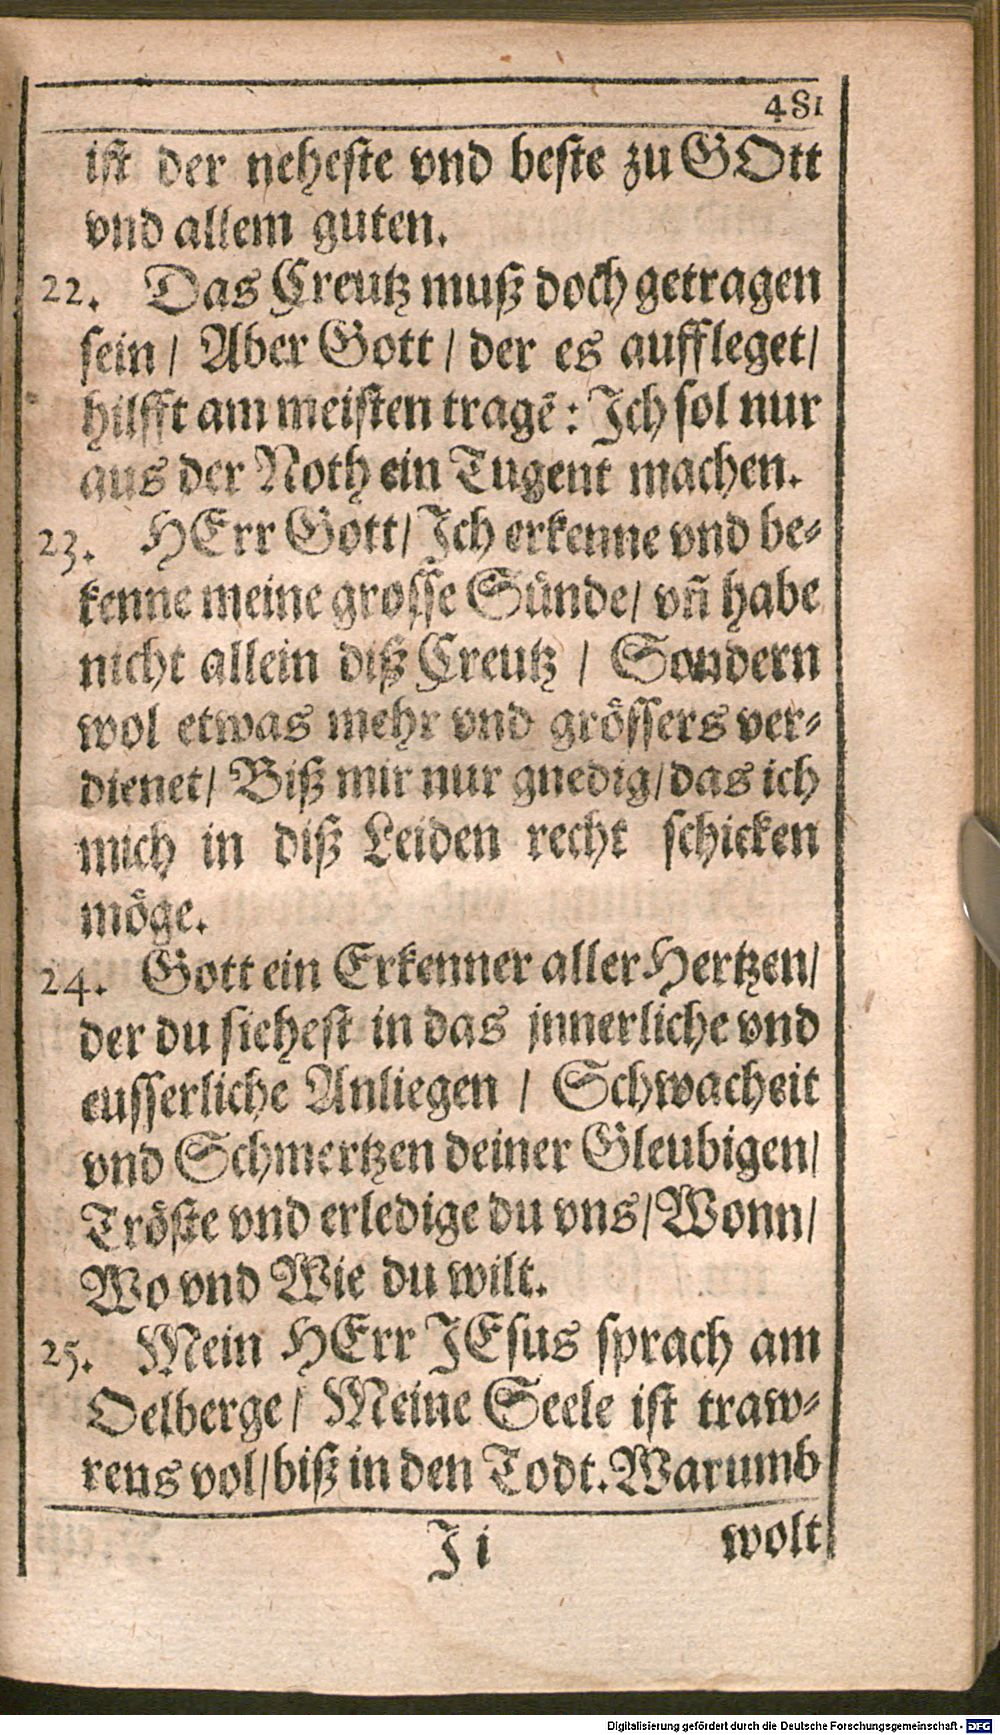 481
ist der neheste vnd beste zu GOtt
vnd allem guten.
22. Das Creutz muß doch getragen
sein / Aber Gott / der es auffleget /
hilfft am meisten tragẽ : Ich sol nur
aus der Noth ein Tugent machen.
23. HErr Gott / Ich erkenne vnd be-
kenne meine grosse Sünde / vñ habe
nicht allein diß Creutz / Sondern
wol etwas mehr vnd grössers ver-
dienet / Biß mir nur gnedig / das ich
mich in diß Leiden recht schicken
möge.
24. Gott ein Erkenner aller Hertzen /
der du siehest in das jnnerliche vnd
eusserliche Anliegen / Schwacheit
vnd Schmertzen deiner Gleubigen /
Tröste vnd erledige du vns / Wonn /
Wo vnd Wie du wilt.
25. Mein HErr JEsus sprach am
Oelberge / Meine Seele ist traw-
rens vol / biß in den Todt. Warumb
J i wolt
Digitalisierung gefördert durch die Deutsche Forschungsgemeinschaft - DFG